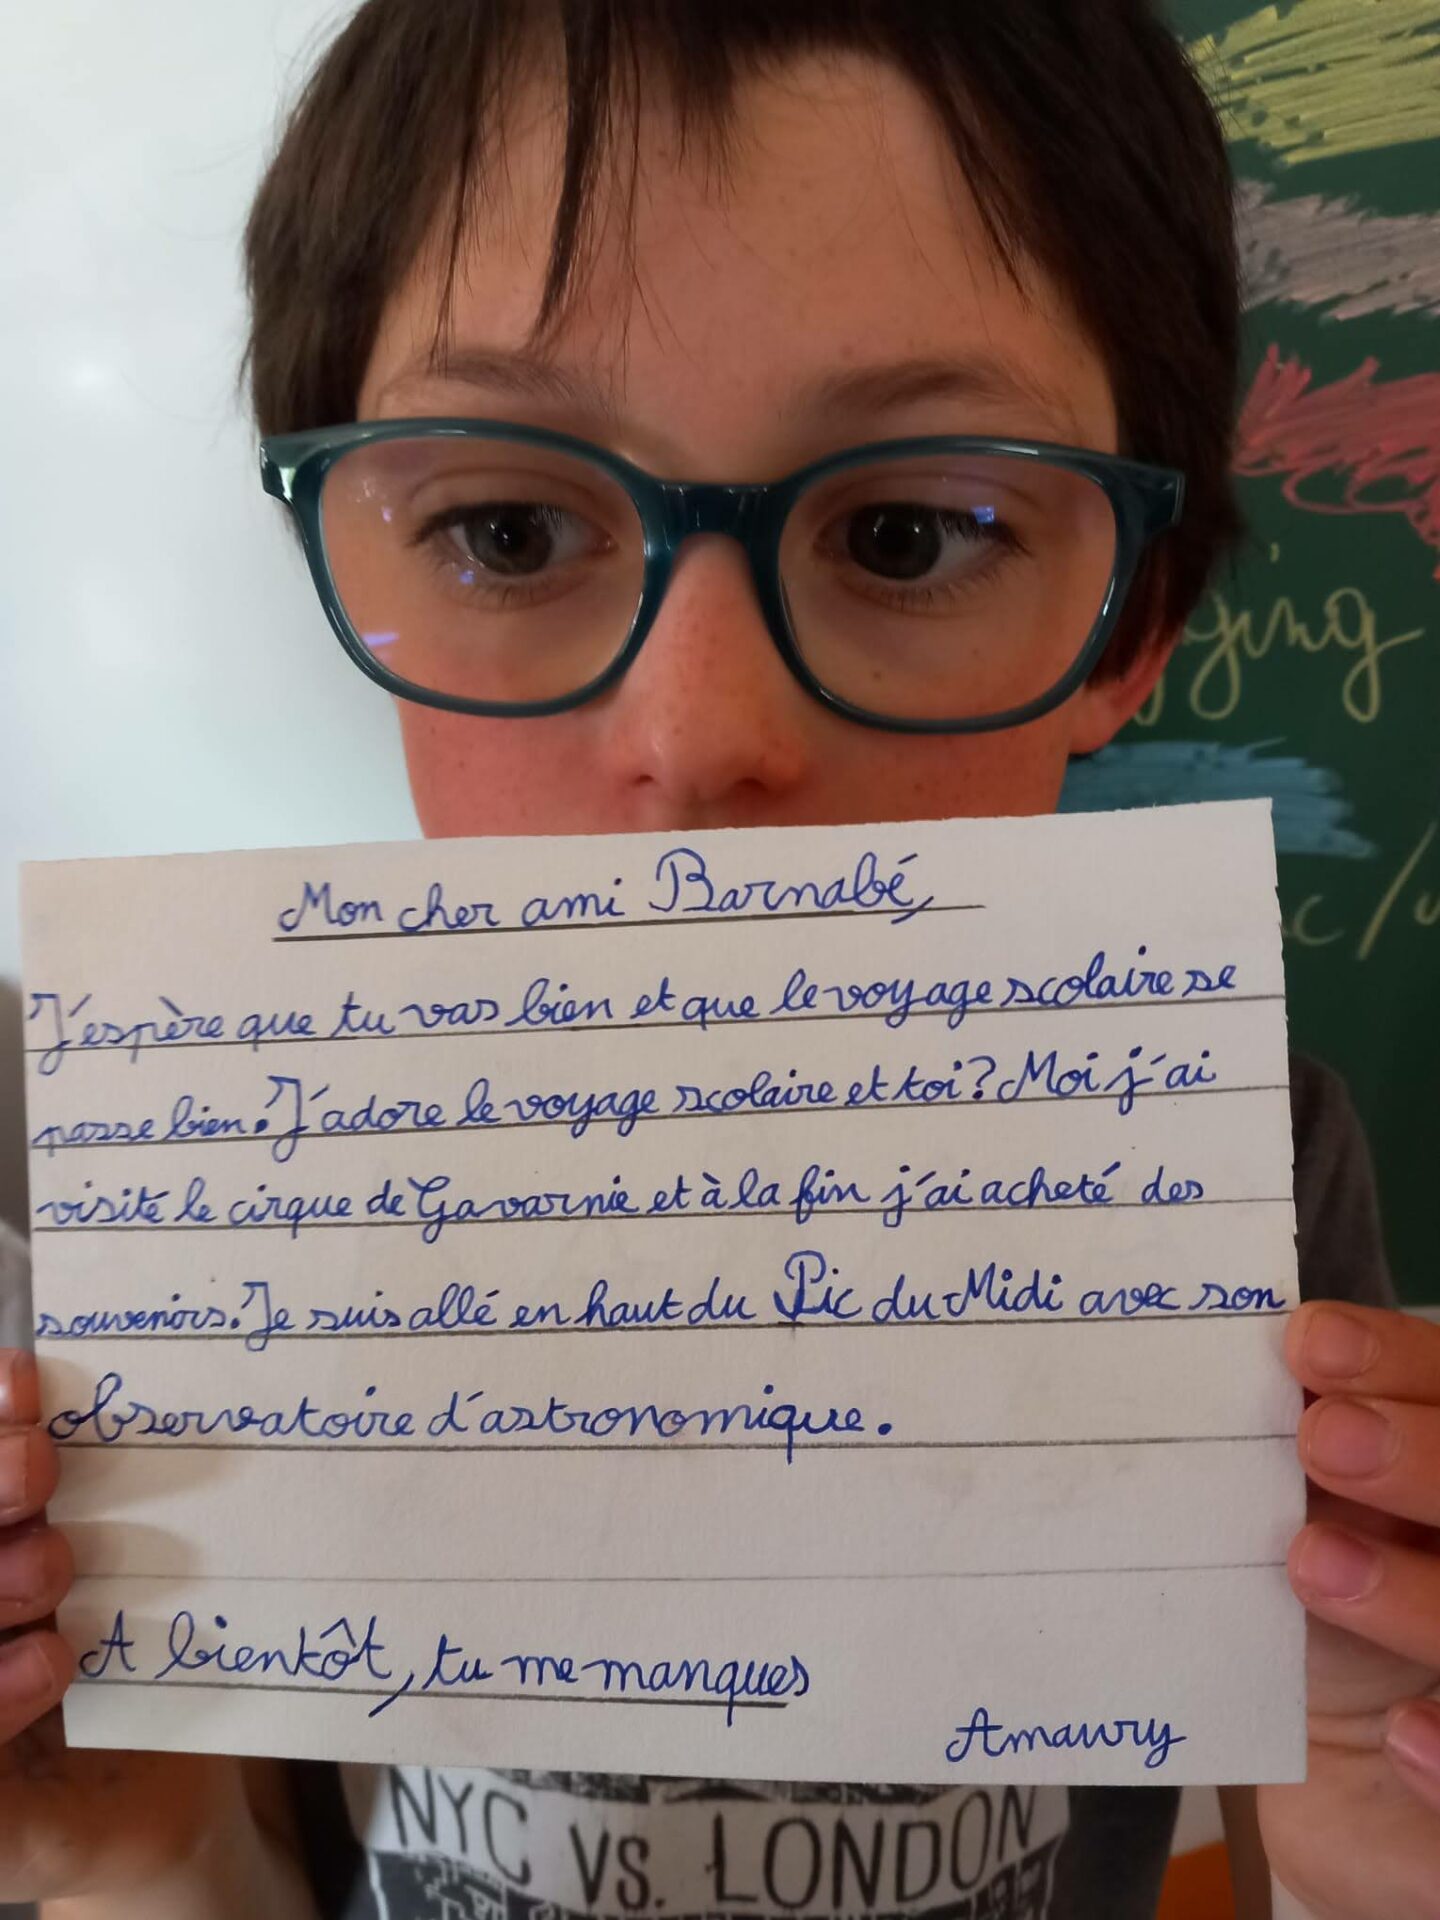 Mon cher ami Barnabé,
J'espère que tu vas bien et que le voyage scolaire se
passe bien. J'adore le voyage scolaire et toi? Moi j'ai
visité le cirque de Gavarnie et à la fin j'ai acheté des
souvenirs. Je suis allé en haut du Pic du Midi avec son
observatoire d'astronomique.
A bientôt, tu me manques
Amaury
NYC
VS. LONDON